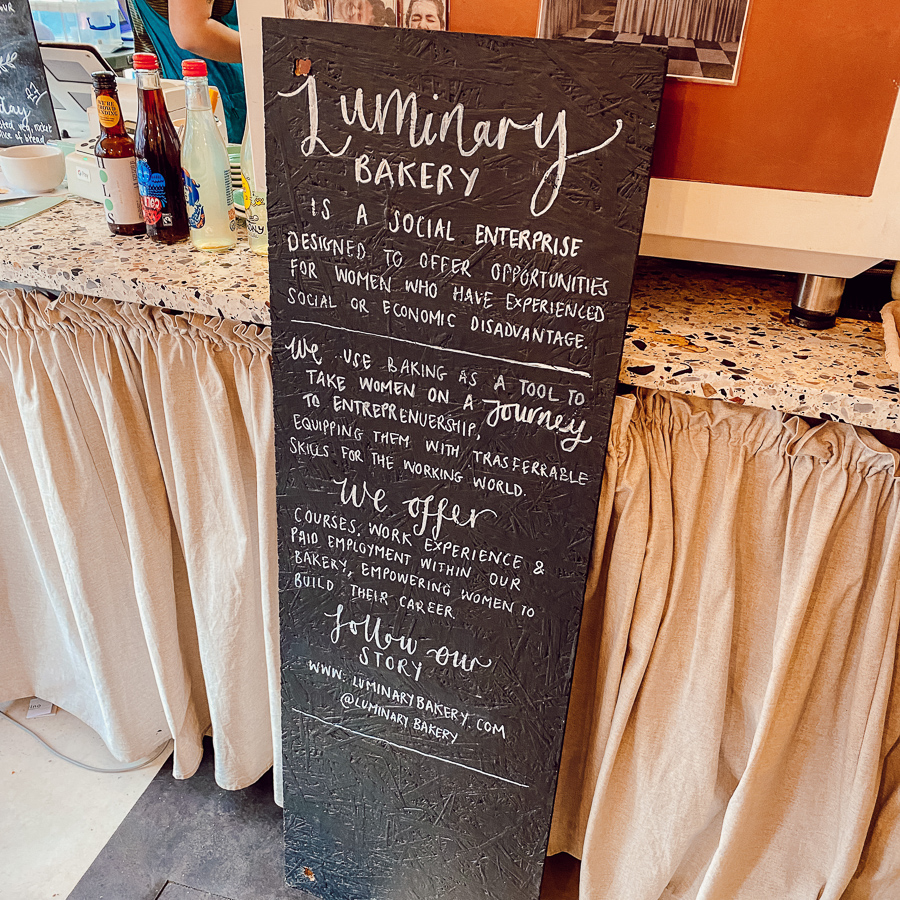 Luminary
BAKERY
IS A SOCIAL ENTERPRISE
DESIGNED TO OFFER OPPORTUNITIES
FOR WOMEN WHO HAVE EXPERIENCED
SOCIAL OR ECONOMIC DISADVANTAGE.
We USE BAKING AS A TOOL TO
TAKE WOMEN ON A Journey
TO ENTREPRENUERSHIP,
EQUIPPING THEM WITH TRASFERRABLE
SKILLS FOR THE WORKING WORLD.
We offer
COURSES, WORK EXPERIENCE &
PAID EMPLOYMENT WITHIN OUR
BAKERY, EMPOWERING WOMEN TO
BUILD THEIR CAREER.
follow our
STORY
WWW.LUMINARYBAKERY.COM
@LUMINARYBAKERY
HOLOS
slice of bread